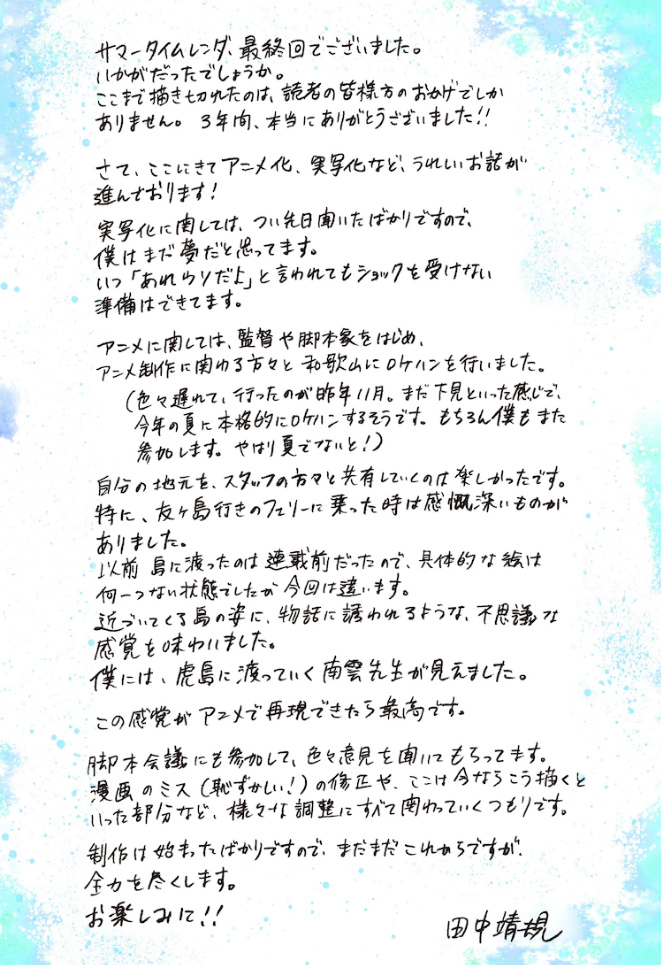 サマータイムレンダ、最終回でございました。
いかがだったでしょうか。
ここまで描き切れたのは、読者の皆様方のおかげでしか
ありません。3年間、本当にありがとうございました!!
さて、ここにきてアニメ化、実写化など、うれしいお話が
進んでおります!
実写化に関しては、つい先日聞いたばかりですので、
僕はまだ夢だと思ってます。
いつ「あれウソだよ」と言われてもショックを受けない
準備はできてます。
アニメに関しては、監督や脚本家をはじめ、
アニメ制作に関わる方々と和歌山にロケハンを行いました。
(色々遅れて、行ったのが昨年11月。まだ下見といった感じで、
今年の夏に本格的にロケハンするそうです。もちろん僕もまた
参加します。やはり夏でないと!)
自分の地元を、スタッフの方々と共有していくのは楽しかったです。
特に、友ヶ島行きのフェリーに乗った時は感慨深いものが
ありました。
以前島に渡ったのは連載前だったので、具体的な絵は
何一つない状態でしたが今回は違います。
近づいてくる島の姿に、物語に誘われるような、不思議な
感覚を味わいました。
僕には、虎島に渡っていく南雲先生が見えました。
この感覚がアニメで再現できたら最高です。
脚本会議にも参加して、色々意見を聞いてもらってます。
漫画のミス(恥ずかしい!)の修正や、ここは今ならこう描くと
いった部分など、様々な調整にすべて関わっていくつもりです。
制作は始まったばかりですので、まだまだこれからですが、
全力を尽くします。
お楽しみに!!
田中靖規